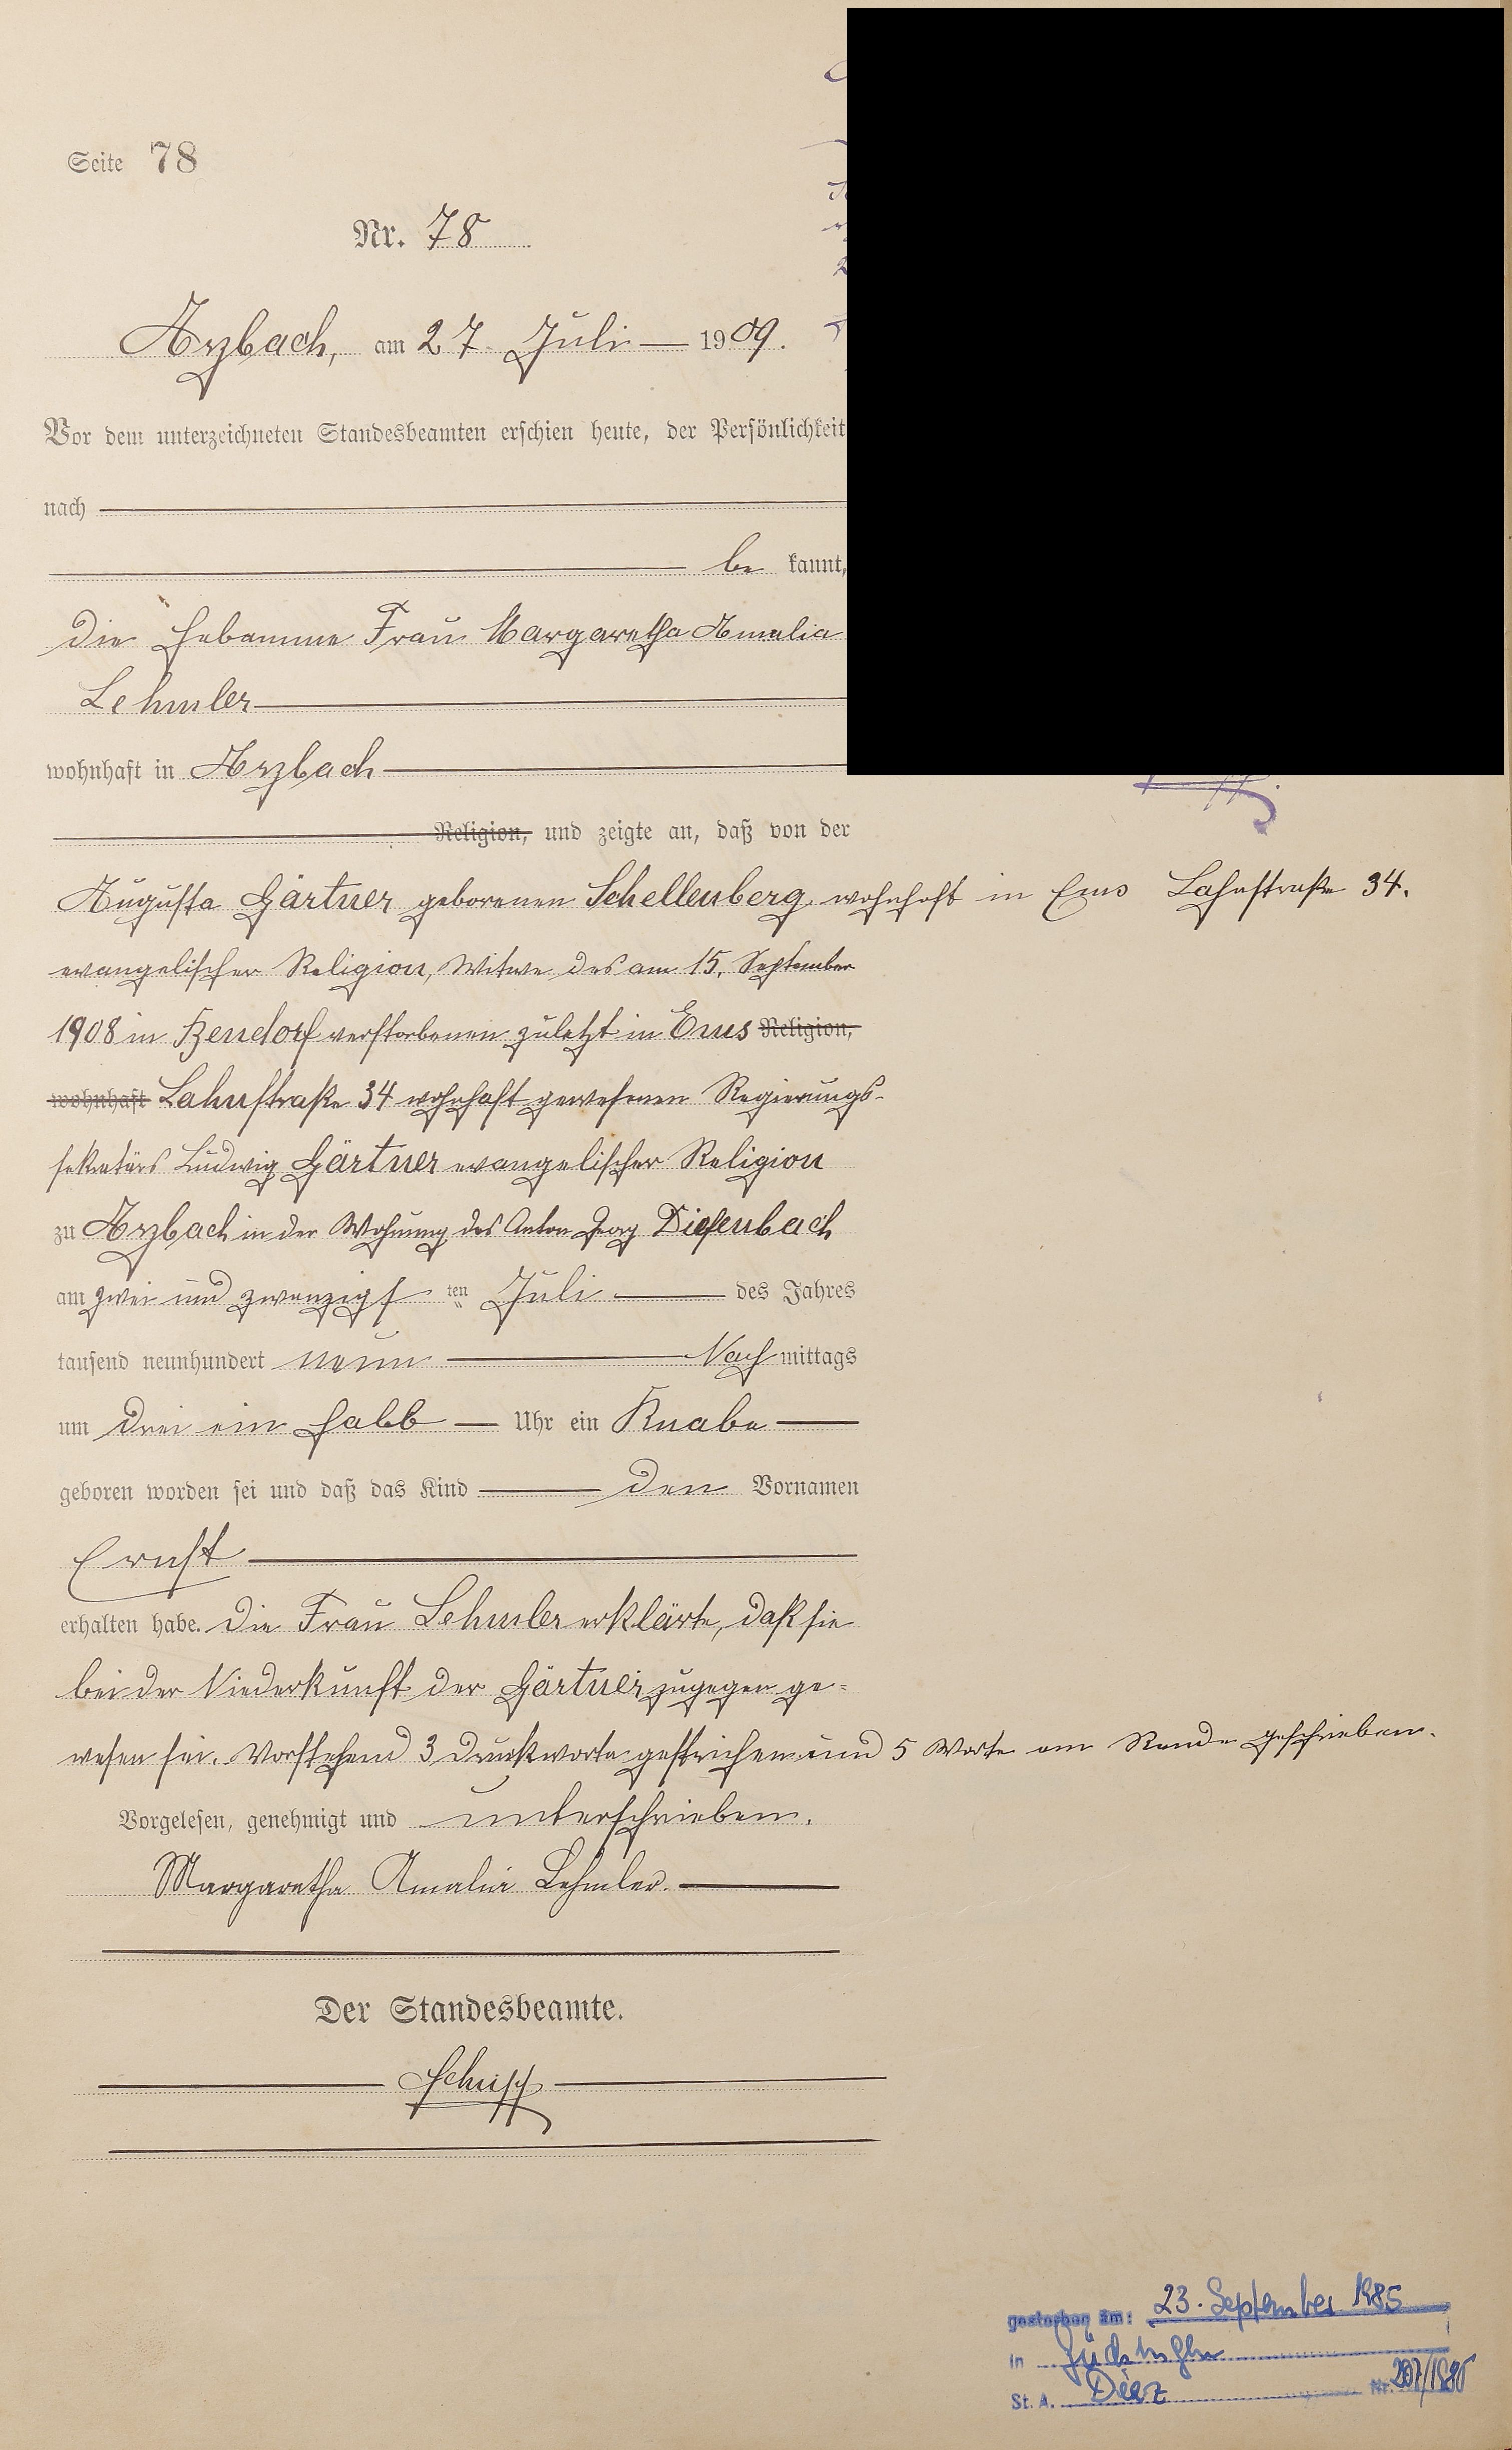 Seite 78
Nr. 78
Arzbach, am 27. Juli 1909.
Vor dem unterzeichneten Standesbeamten erschien heute, der Persönlichkeit
nach
be kannt,
die Hebamme Frau Margaretha Amalia
Lehmler
wohnhaft in Arzbach
Religion, und zeigte an, daß von der
Augusta Gärtner geborenen Schellenberg, wohnhaft in Ems Lahnstraße 34.
evangelischer Religion, Witwe des am 15. September
1908 in Bendorf verstorbenen zuletzt in Ems Religion,
wohnhaft Lahnstraße 34 wohnhaft gewesenen Regierungs-
sekretärs Ludwig Gärtner evangelischer Religion
zu Arzbach in der Wohnung des Anton Georg Diefenbach
am zwei und zwanzigs ten Juli des Jahres
tausend neunhundert neun Nach mittags
um drei ein halb Uhr ein Knabe
geboren worden sei und daß das Kind den Vornamen
Ernst
erhalten habe. Die Frau Lehmler erklärte, daß sie
bei der Niederkunft der Gärtner zugegen ge-
wesen sei. Vorstehend 3 Druckworte gestrichen und 5 Worte am Rande geschrieben.
Vorgelesen, genehmigt und unterschrieben.
Margaretha Amalia Lehmler.
Der Standesbeamte.
gestorben am: 23. September 1985
in
St. A. Diez Nr.